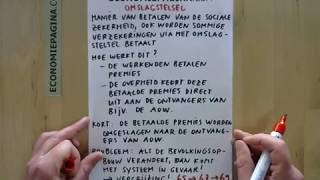 OMSLAGSTELSEL
MANIER VAN BETALEN VAN DE SOCIALE
ZEKERHEID, OOK WORDEN SOMMIGE
VERZEKERINGEN VIA HET OMSLAG-
STELSEL BETAALT
HOE WERKT DIT?
- DE WERKENDEN BETALEN
PREMIES
- DE OVERHEID KEERT DEZE
BETAALDE PREMIES DIRECT
UIT AAN DE ONTVANGERS VAN
BIJV. DE AOW.
KORT: DE BETAALDE PREMIES WORDEN
OMGESLAGEN NAAR DE ONTVAN-
GERS VAN AOW.
PROBLEEM: ALS DE BEVOLKINGSOP-
BOUW VERANDERT, DAN KOMT
HET SYSTEEM IN GEVAAR!
VERGRIJZING! 65 → 67 → 69
ECONOMIEPAGINA.COM